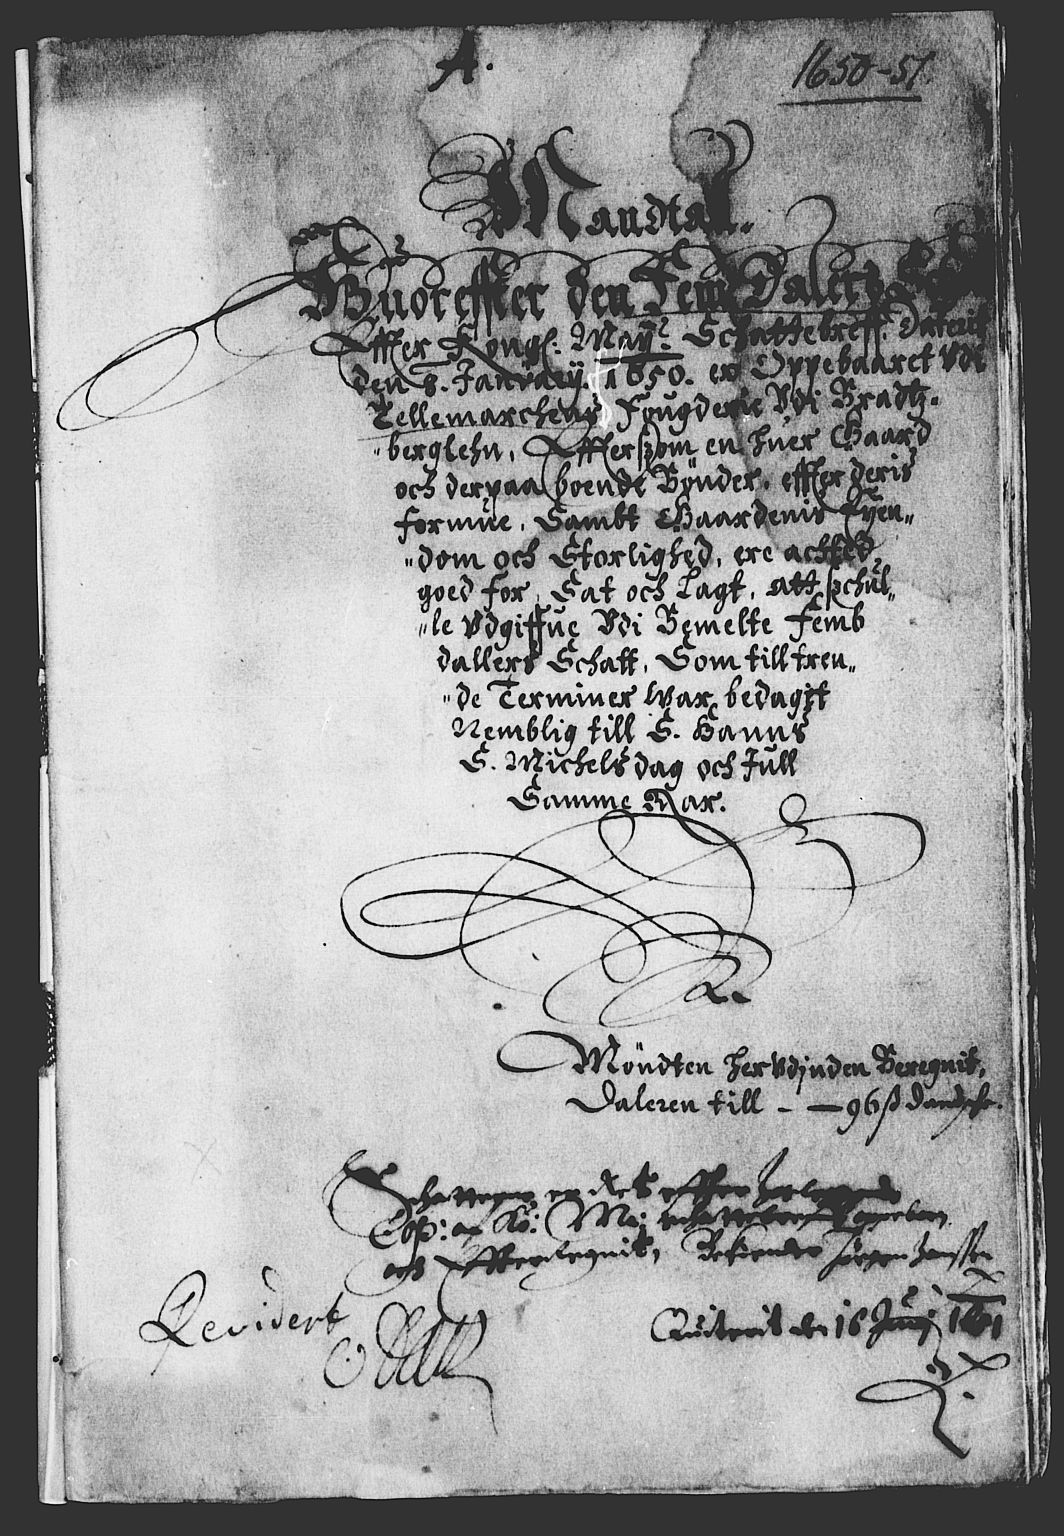 A.
1650-51.
Mandtal.
Huoreffter den Fem Dalerß
Effter Kongl: Mayß: Schattebreff. Daterit
den 8. Januarij. 1650. er Oppebaaret Vdi
Tellemarchens Fougderie Vdi Bradtz-
berglehn, Effterßom en huer Gaard
och derpaa boende Bønder, effter deris
formue, Sambt Gaardenis Eyen-
dom och Storlighed, ere achted,
goed for, Sat och Lagt, att schul-
le Vdgiffue Vdi Bemelte Femb
dallers Schatt, Som till tren-
de Terminer War bedagtt
Nemblig till S. Hanns
S. Michels dag och Jull
Samme Aar.
Møndten her Vdjnden Beregnit,
Daleren till - - 96 ß danske.
och Effterlegnit, Bekiender Jørgen Janssen
Quiterit den 16 Junij 1651
Revidert